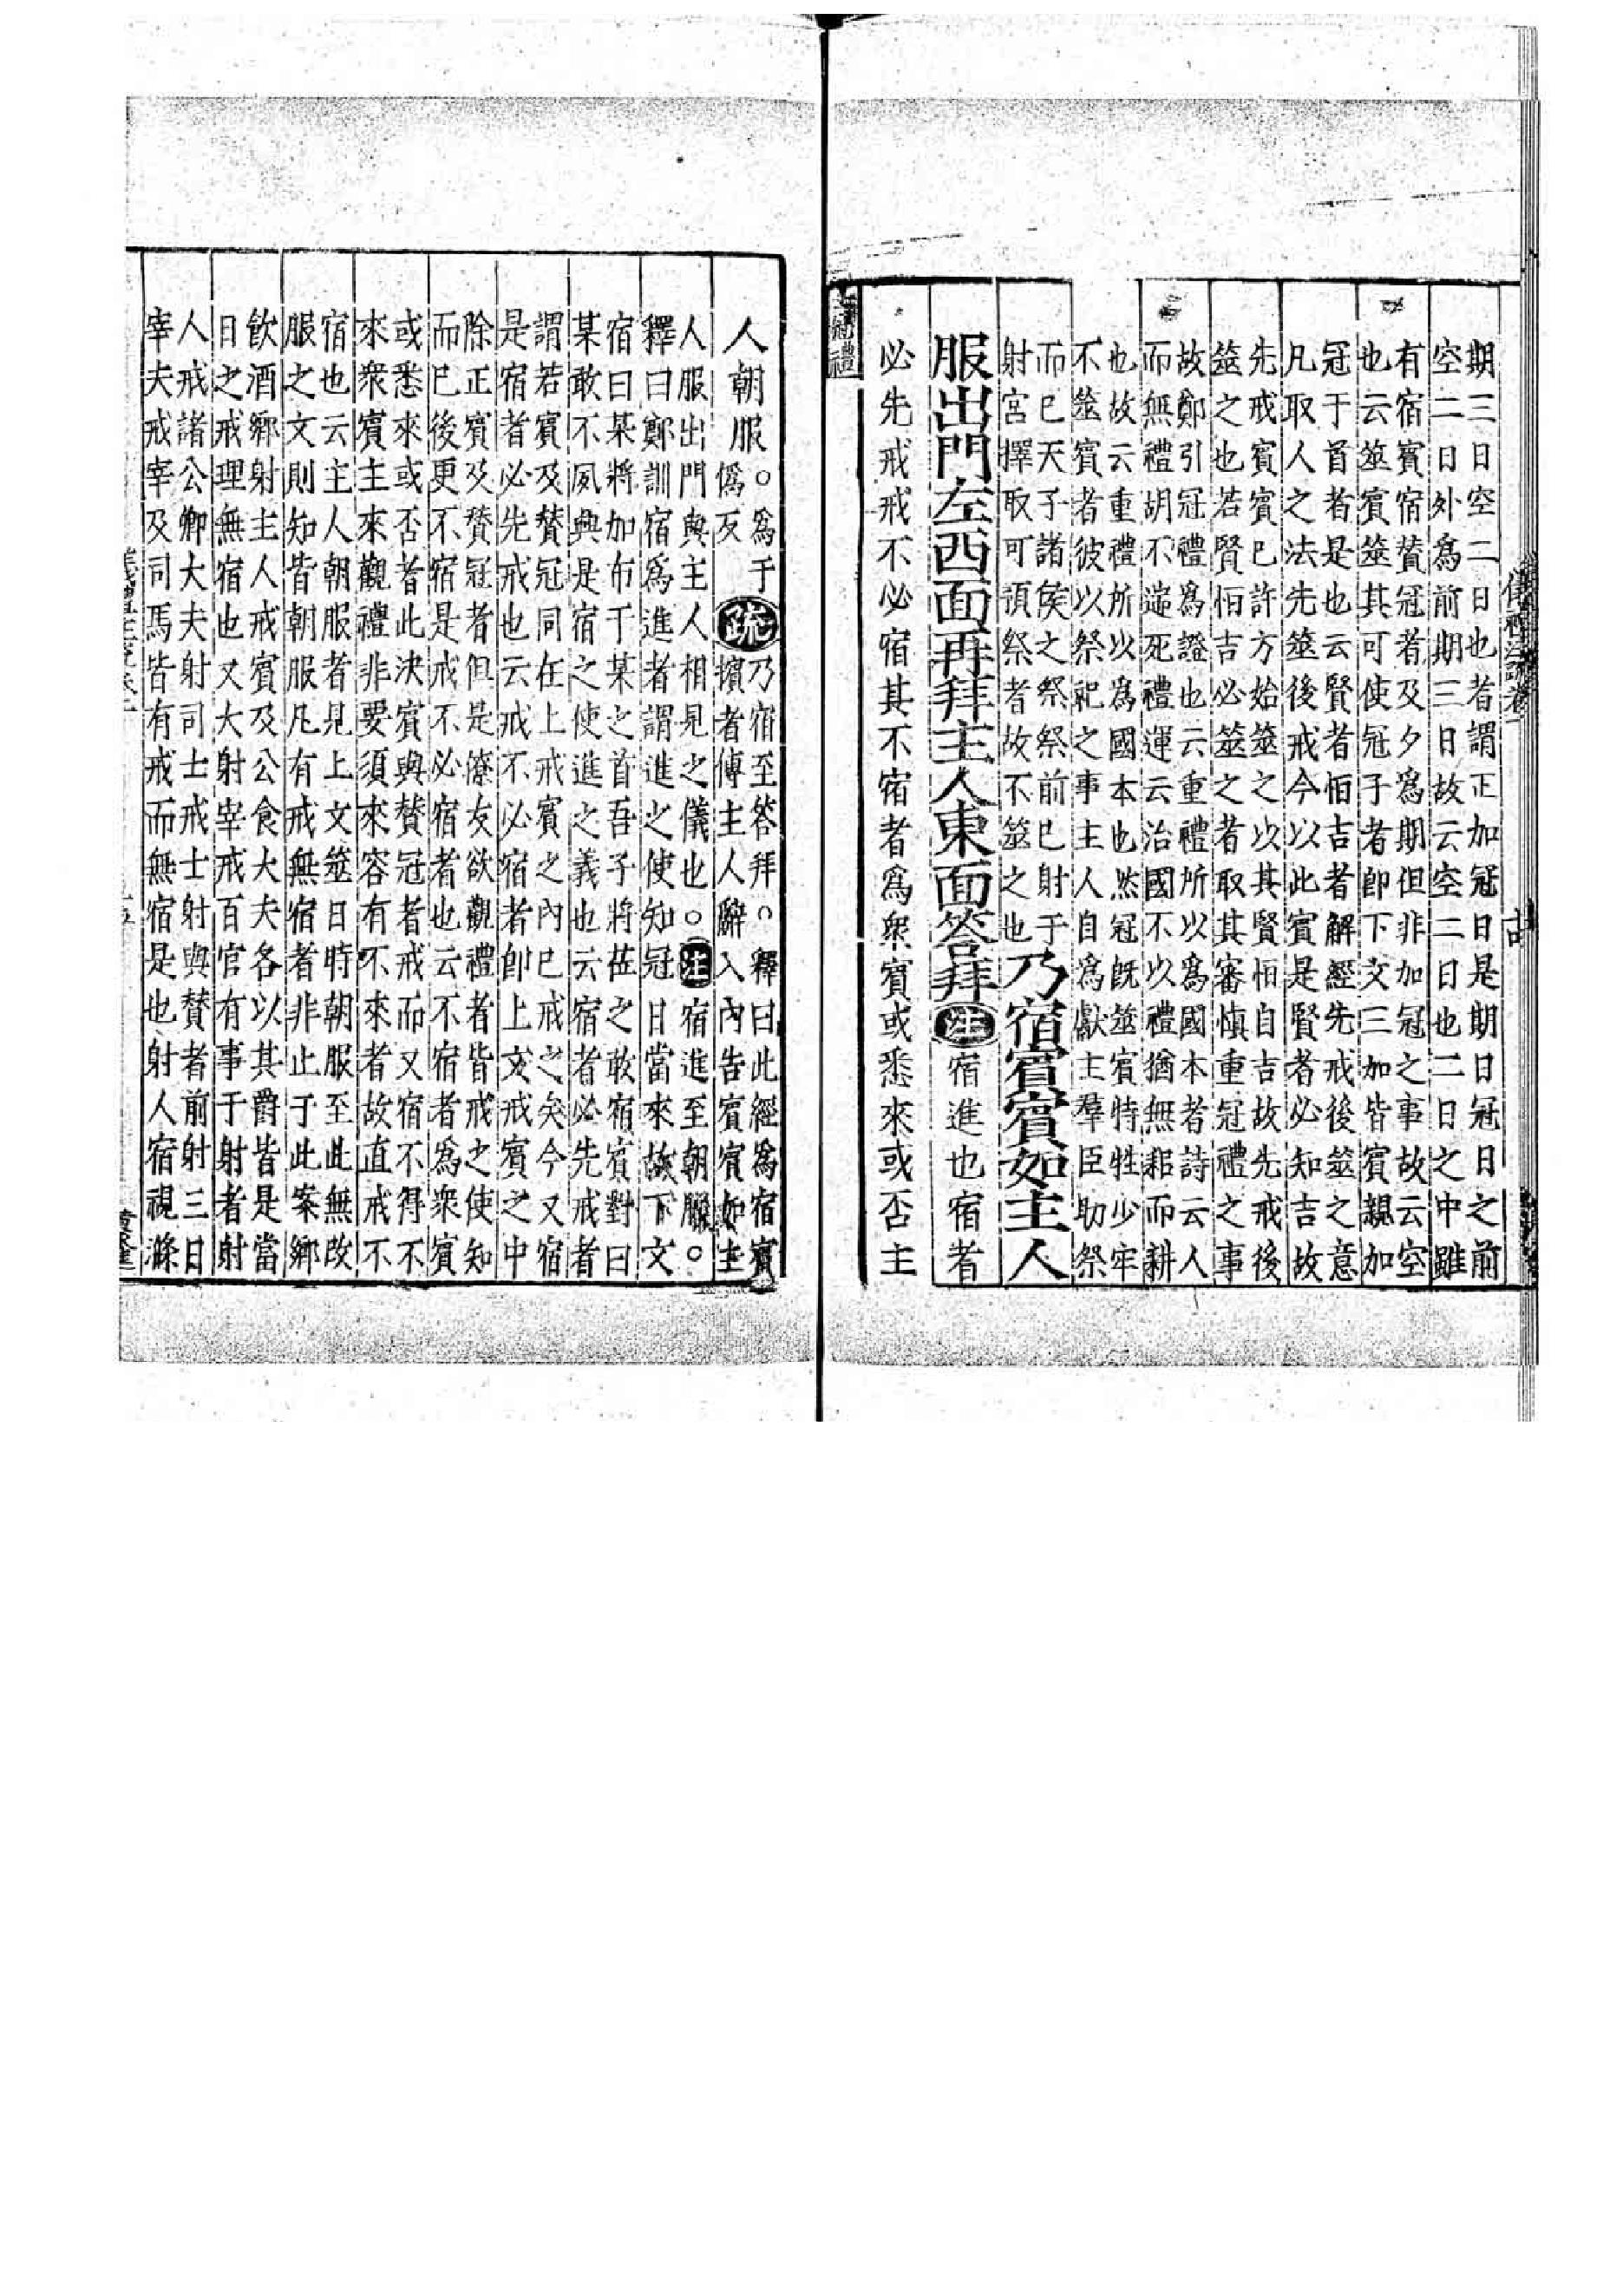 期三日空二日也者謂正加冠日是期日冠日之前
空二日外爲前期三日故云空二日也二日之中雖
有宿賓宿贊冠者及夕爲期但非加冠之事故云空
也云筮賓筮其可使冠子者即下文三加皆賓親加
冠于首者是也云賢者恒吉者解經先戒後筮之意
凡取人之法先筮後戒今以此賓是賢者必知吉故
先戒賓賓已許方始筮之以其賢恒自吉故先戒後
筮之也若賢恒吉必筮之者取其審慎重冠禮之事
故鄭引冠禮爲證也云重禮所以爲國本者詩云人
而無禮胡不遄死禮運云治國不以禮猶無耜而耕
也故云重禮所以爲國本也然冠既筮賓特牲少牢
不筮賓者彼以祭祀之事主人自爲獻主羣臣助祭
而已天子諸矦之祭祭前已射于
射宮擇取可預祭者故不筮之也
乃宿賓賓如主人
服出門左西面再拜主人東面答拜
注
宿進也宿者
必先戒戒不必宿其不宿者爲衆賓或悉來或否主
人朝服。
爲于
僞反
疏
乃宿至答拜。釋曰此經爲宿賓
擯者傳主人辭入內告賓賓如主
人服出門與主人相見之儀也。注宿進至朝服。
釋曰鄭訓宿爲進者謂進之使知冠日當來故下文
宿曰某將加布于某之首吾子將莅之敢宿賓對曰
某敢不夙興是宿之使進之義也云宿者必先戒者
謂若賓及贊冠同在上戒賓之內已戒之矣今又宿
是宿者必先戒也云戒不必宿者即上文戒賓之中
除正賓及贊冠者但是僚友欲觀禮者皆戒之使知
而已後更不宿是戒不必宿者也云不宿者爲衆賓
或悉來或否者此決賓與贊冠者戒而又宿不得不
來衆賓主來觀禮非要須來容有不來者故直戒不
宿也云主人朝服者見上文筮日時朝服至此無改
服之文則知皆朝服凡有戒無宿者非止于此案鄉
飲酒鄉射主人戒賓及公食大夫各以其爵皆是當
日之戒理無宿也又大射宰戒百官有事于射者射
人戒諸公卿大夫射司士戒士射與贊者前射三日
宰夫戒宰及司馬皆有戒而無宿是也射人宿視滌